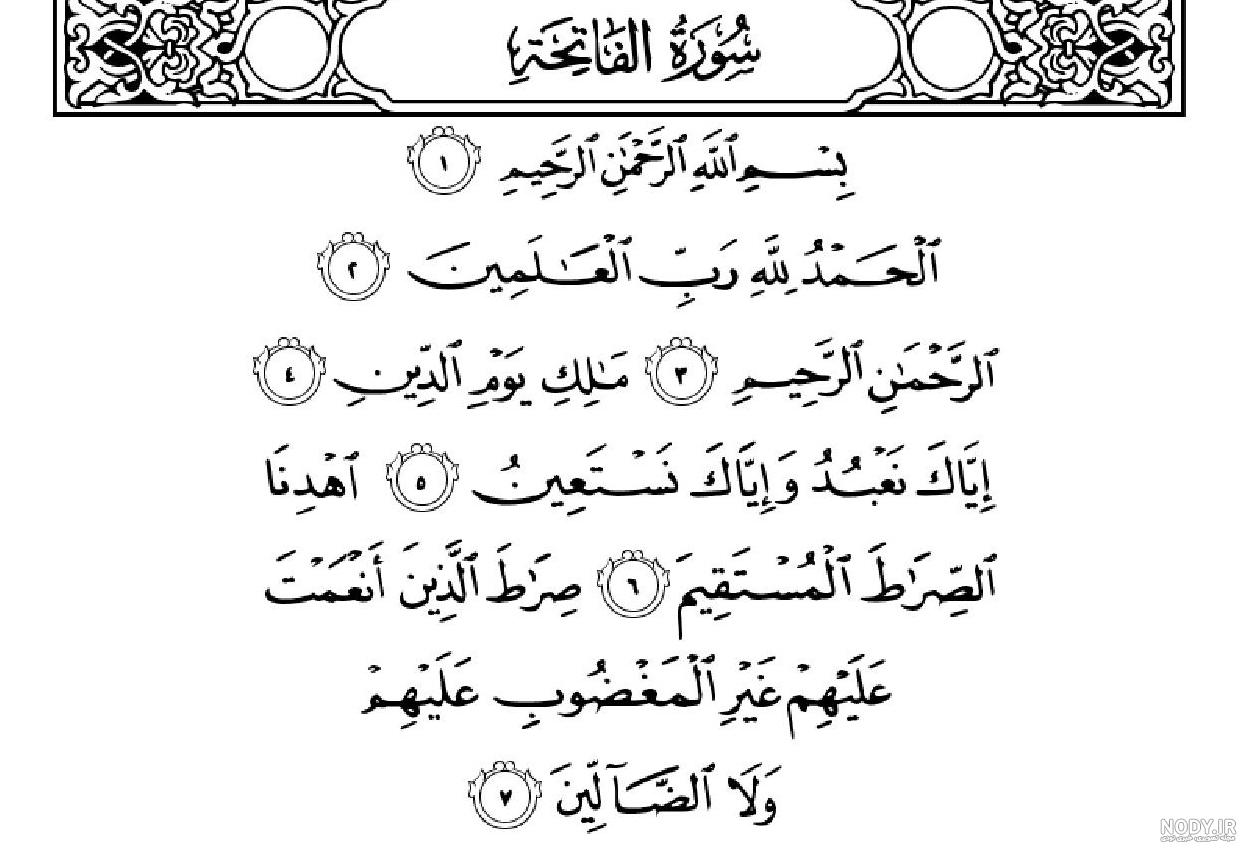 سُورَةُ الفَاتِحَةِ
بِسْمِ ٱللَّهِ ٱلرَّحْمَٰنِ ٱلرَّحِيمِ ١
ٱلْحَمْدُ لِلَّهِ رَبِّ ٱلْعَٰلَمِينَ ٢
ٱلرَّحْمَٰنِ ٱلرَّحِيمِ ٣ مَٰلِكِ يَوْمِ ٱلدِّينِ ٤
إِيَّاكَ نَعْبُدُ وَإِيَّاكَ نَسْتَعِينُ ٥ ٱهْدِنَا
ٱلصِّرَٰطَ ٱلْمُسْتَقِيمَ ٦ صِرَٰطَ ٱلَّذِينَ أَنْعَمْتَ
عَلَيْهِمْ غَيْرِ ٱلْمَغْضُوبِ عَلَيْهِمْ
وَلَا ٱلضَّآلِّينَ ٧
NODY.IR